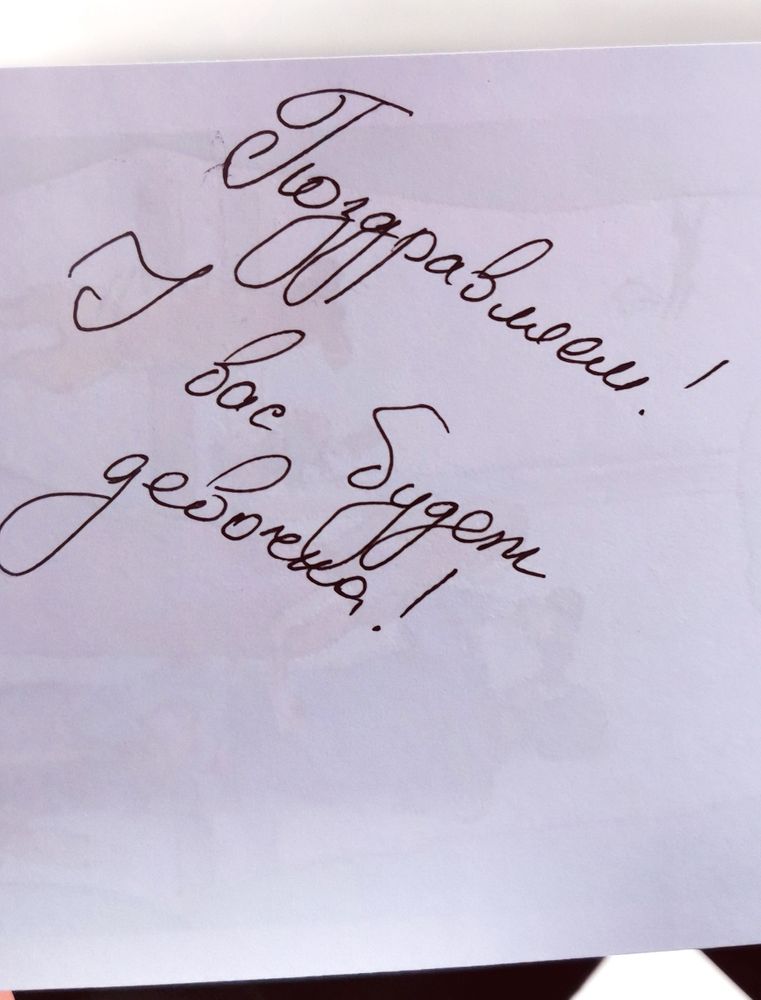 Поздравляем!
У вас будет
девочка!